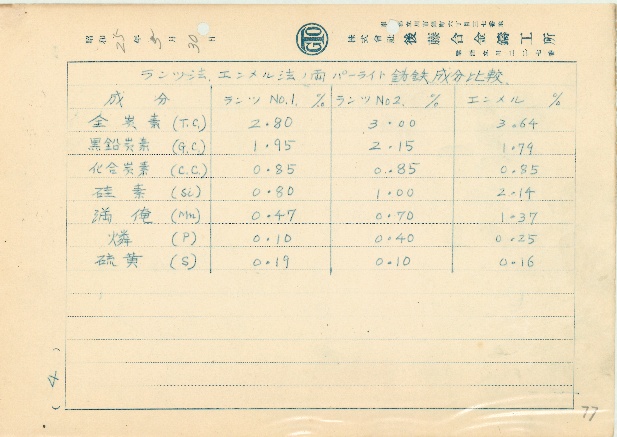 昭和 25 年 5 月 30 日
GTO
株式會社 後藤合金鑄工所
ランツ法、エンメル法ノ両パーライト鋳鉄成分比較.
成分 ランツ No.1. % ランツ No2. % エンメル %
全炭素 (T.C.) 2.80 3.00 3.64
黒鉛炭素 (G.C.) 1.95 2.15 1.79
化合炭素 (C.C.) 0.85 0.85 0.85
硅素 (Si) 0.80 1.00 2.14
満俺 (Mn) 0.47 0.70 1.37
燐 (P) 0.10 0.40 0.25
硫黄 (S) 0.19 0.10 0.16
(4)
77